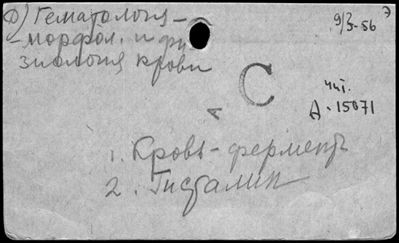 Ф) Гематология -
- морфол. и фи
зиология крови
9/3-56
Э
С
А
чит.
А-15071
1. Кровь - ферменты
2. Гисталин